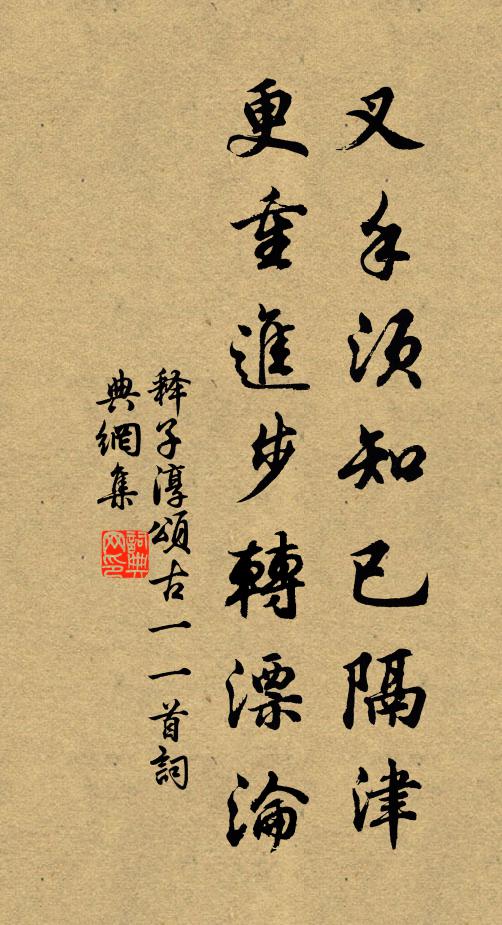 叉手須知已隔津
更重進步轉漂淪
釋子淳頌古一一首詞
典網集
詞典網印